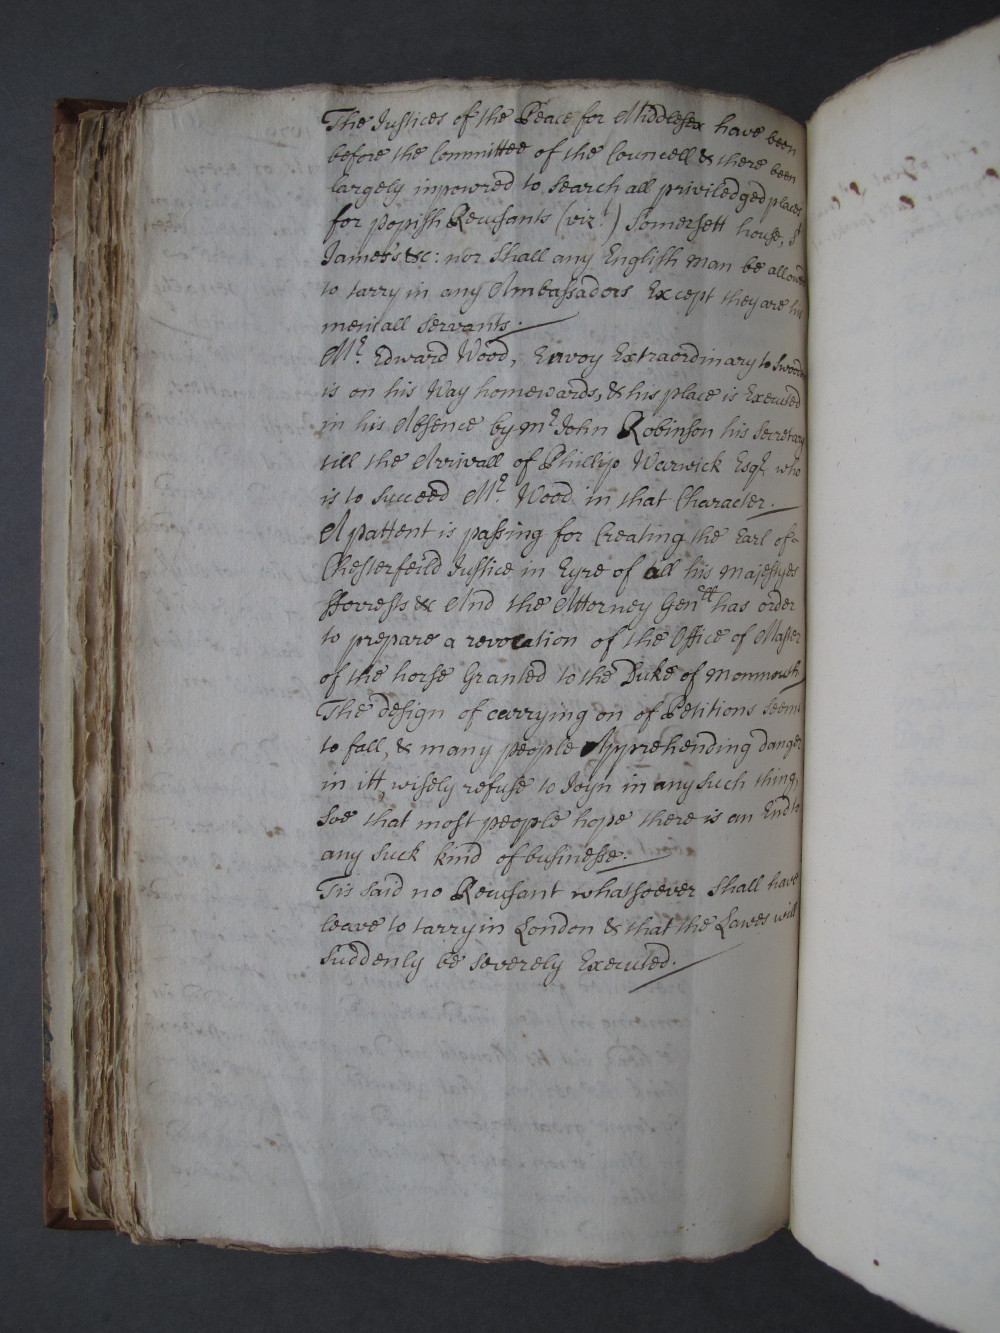 The Justices of the Peace for Middlesex have been
before the Committee of the Councell & there been
largely impowred to search all priviledged places
for popish Recusants (vizt) Somersett house, St
James's &c: nor shall any English man be allowed
to tarry in any Ambassadors Except they are his
meniall servants.
Mr. Edward Wood, Envoy Extraordinary to Sweden
is on his Way homewards, & his place is Executed
in his Absence by mr John Robinson his Secretary
till the Arrivall of Phillip Warwick Esqr. who
is to succeed Mr. Wood in that Character.
A pattent is passing for Creating the Earl of
Chesterfeild Justice in Eyre of all his Majestyes
fforrests &c And the Attorney Genll has order
to prepare a revocation of the Office of Master
of the horse Granted to the Duke of Monmouth
The design of carrying on of Petitions seems
to fall, & many people Apprehending danger
in itt wisely refuse to Joyn in any such thing,
soe that most people hope there is an End to
any suck kind of businesse.
Tis said no Recusant whatsoever shall have
leave to tarry in London & that the Lawes will
suddenly be severely Executed.